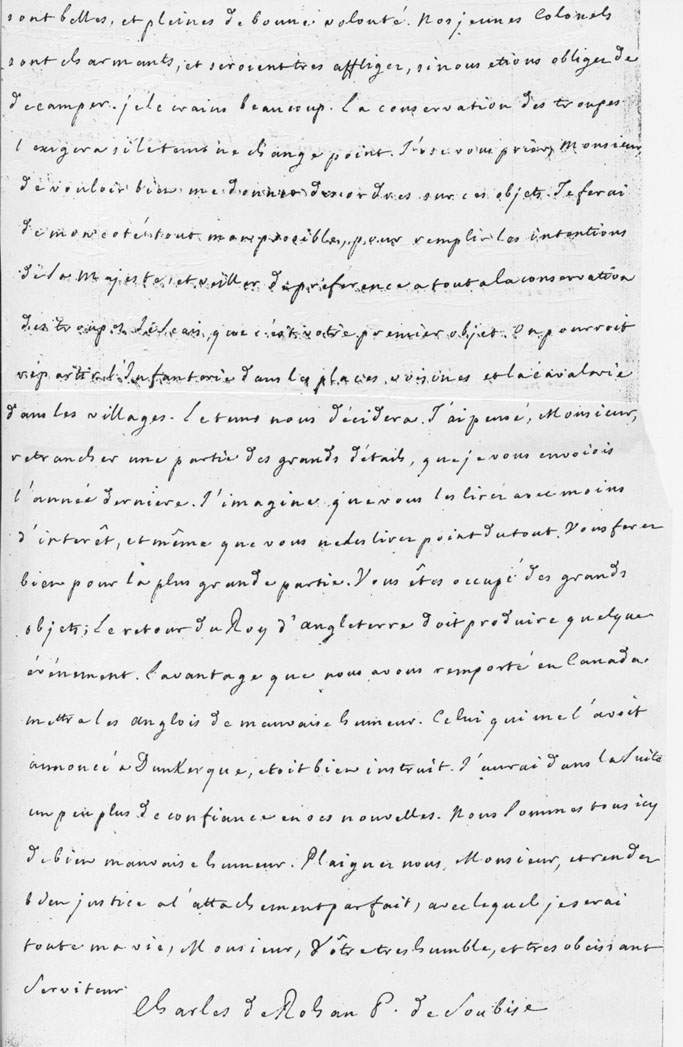 sont belles, et pleines de bonne volonté. Nos jeunes Colonels
sont charmants, et seroient tres affliger, si nous etions obliger de
decamper. je le crains beaucoup. La conservation des troupes
l'exigera si le tems ne change point. J'ose vous prier, Monsieur,
de vouloir bien me donner des ordres sur ces objets. Je ferai
de mon coté tout mon possible, pour remplir les intentions
de Sa Majesté, et veiller de préférence a tout a la conservation
des troupes. Je sais, que c'est votre premier objet. On pourroit
répartir l'Infanterie dans les places voisines et la Cavalerie
dans les villages. Le tems nous décidera. J'ai pensé, Monsieur,
retrancher une partie des grands détails, que je vous envoiois
l'année derniere. J'imagine que vous les lirer avec moins
d'interêt, et même que vous ne les lirer point du tout. Vous ferer
bien pour la plus grande partie. Vous êtes occupé des grands
objets; Le retour du Roy d'Angleterre doit produire quelque
événement. L'avantage que nous avons remporté en Canada
mettra les anglois de mauvaise humeur. Celui qui me l'avoit
annoncé a Dunkerque, etoit bien instruit. J'aurai dans la Suite
un peu plus de confiance en ses nouvelles. Nous Sommes tous icy
de bien mauvaise humeur. Plaigner nous, Monsieur, et render
bien justice a l'attachement parfait, avec lequel je serai
toute ma vie, Monsieur, Vôtre tres humble, et tres obeissant
Serviteur
Charles de Rohan P. de Soubise